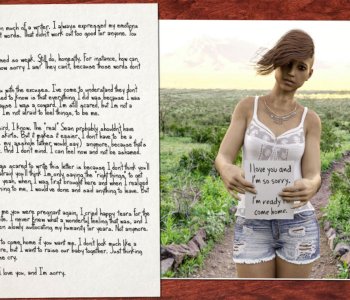 n much of a writer. I always expressed my emotions
words. That didn't work out too good for anyone. You
med so weak. Still do, honestly. For instance, how can
how sorry I am? They can't, because those words don't
w with the excuses. I've come to understand they don't
need to know is that everything I did was because I was
cause I was a coward. I'm still scared, but I'm not a
I'm not afraid to feel things, to be me.
ird, I know. The "real" Sean probably shouldn't have
skirts. But it makes it easier. I don't have to be a
my asshole father would say) anymore, because that's
And I don't mind. I can feel now and not be ashamed.
scared to write this letter is because I don't think you'll
afraid you'll think I'm only saying the "right things" to get
yeah, when I was first brought here and when I realized
ing to me, I would've said anything to leave. But
me you were pregnant again, I cried happy tears for the
I never knew what a wonderful feeling that was, and I
een slowly advocating my humanity for years. Not anymore.
to come home if you want me. I don't look much like a
re, but I want to raise our baby together. Just thinking
me cry.
I love you, and I'm sorry.
I love you and
I'm so sorry.
I'm ready to
come home.